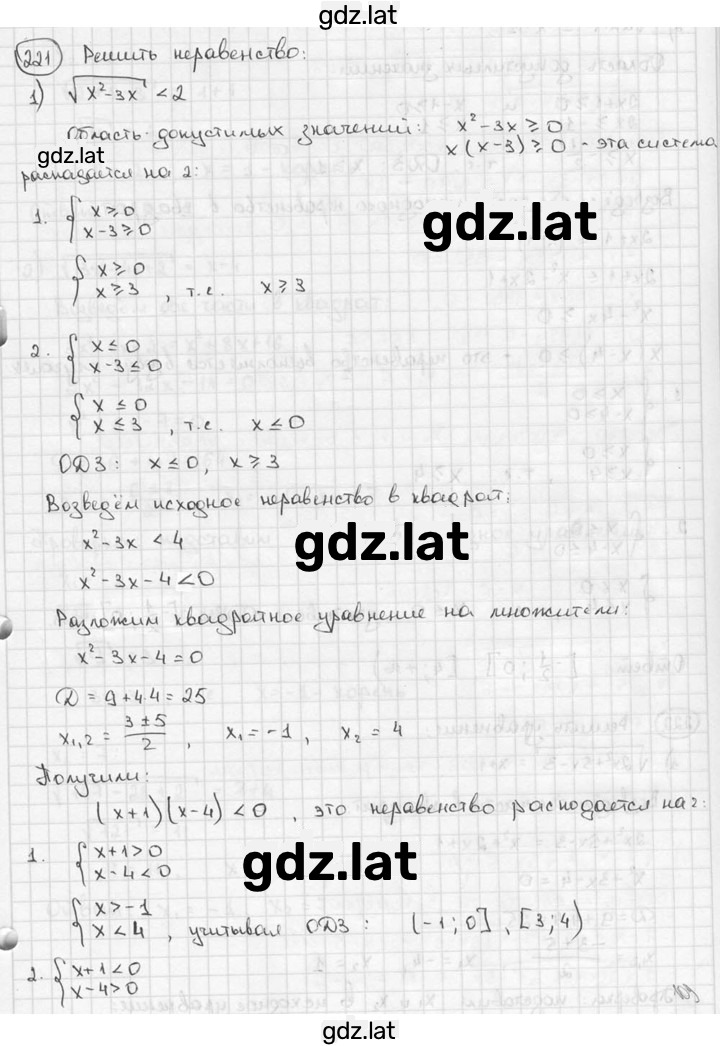 gdz.lat
221 Решить неравенство:
1) √x²-3x < 2
Область допустимых значений: x²-3x ≥ 0
x(x-3) ≥ 0 - эта система
gdz.lat
распадается на 2:
1. { x ≥ 0
x-3 ≥ 0
gdz.lat
{ x ≥ 0
x ≥ 3 , т.е. x ≥ 3
2. { x ≤ 0
x-3 ≤ 0
{ x ≤ 0
x ≤ 3 , т.е. x ≤ 0
ОДЗ: x ≤ 0, x ≥ 3
Возведём исходное неравенство в квадрат:
x²-3x < 4
gdz.lat
x²-3x-4 < 0
Разложим квадратное уравнение на множители:
x²-3x-4 = 0
D = 9+4·4 = 25
x₁,₂ = (3±5)/2 , x₁ = -1 , x₂ = 4
Получили:
(x+1)(x-4) < 0 , это неравенство распадается на 2:
1. { x+1 > 0
x-4 < 0
gdz.lat
{ x > -1
x < 4 , учитывая ОДЗ: (-1; 0] , [3; 4)
2. { x+1 < 0
x-4 > 0
109
gdz.lat